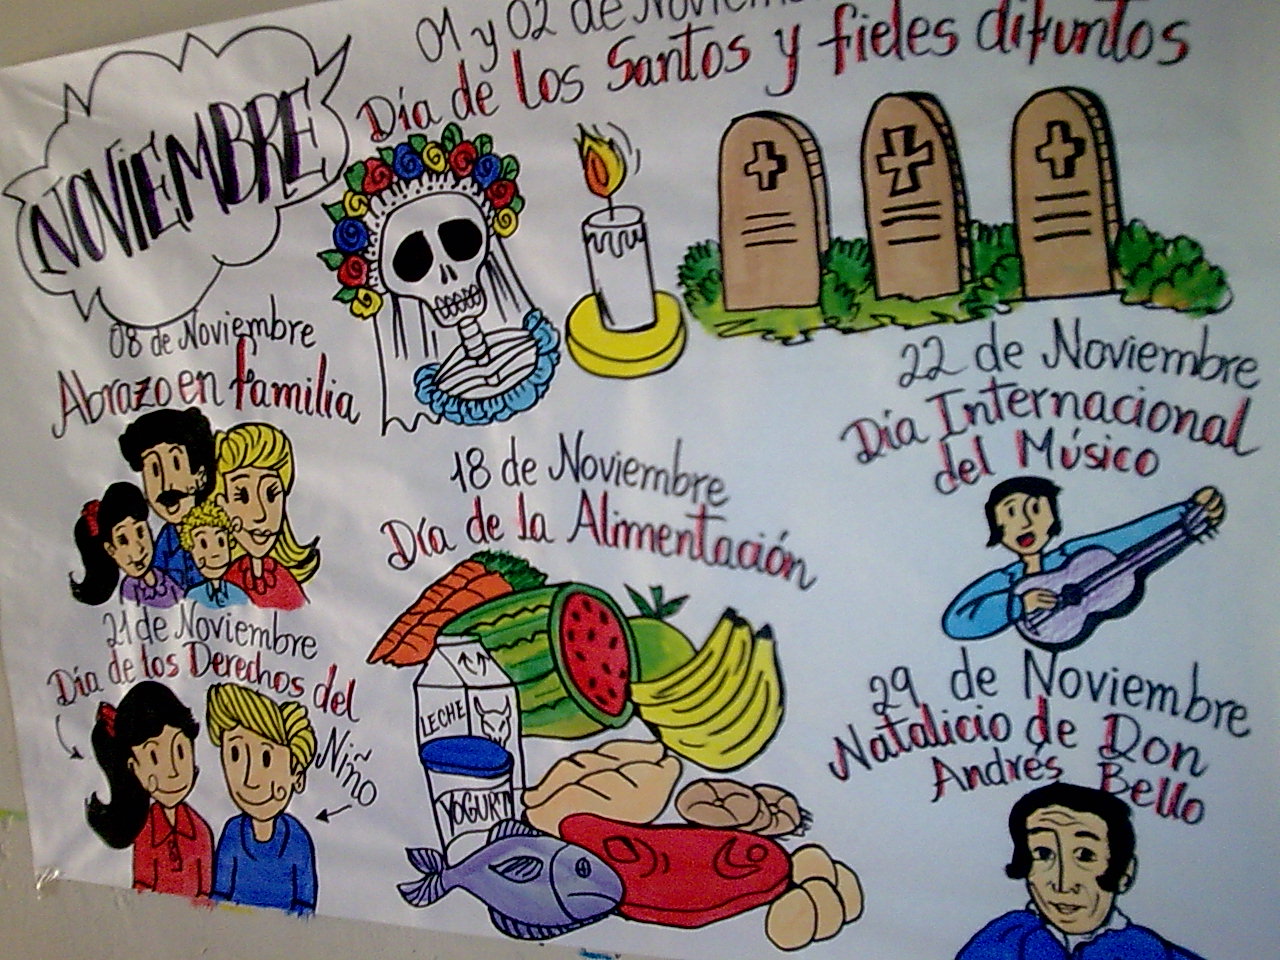 NOVIEMBRE
01 y 02 de Noviem
Día de los Santos y fieles difuntos
08 de Noviembre
Abrazo en familia
18 de Noviembre
Día de la Alimentación
LECHE
YOGURT
21 de Noviembre
Día de los Derechos del
Niño
22 de Noviembre
Día Internacional
del Músico
29 de Noviembre
Natalicio de Don
Andrés Bello